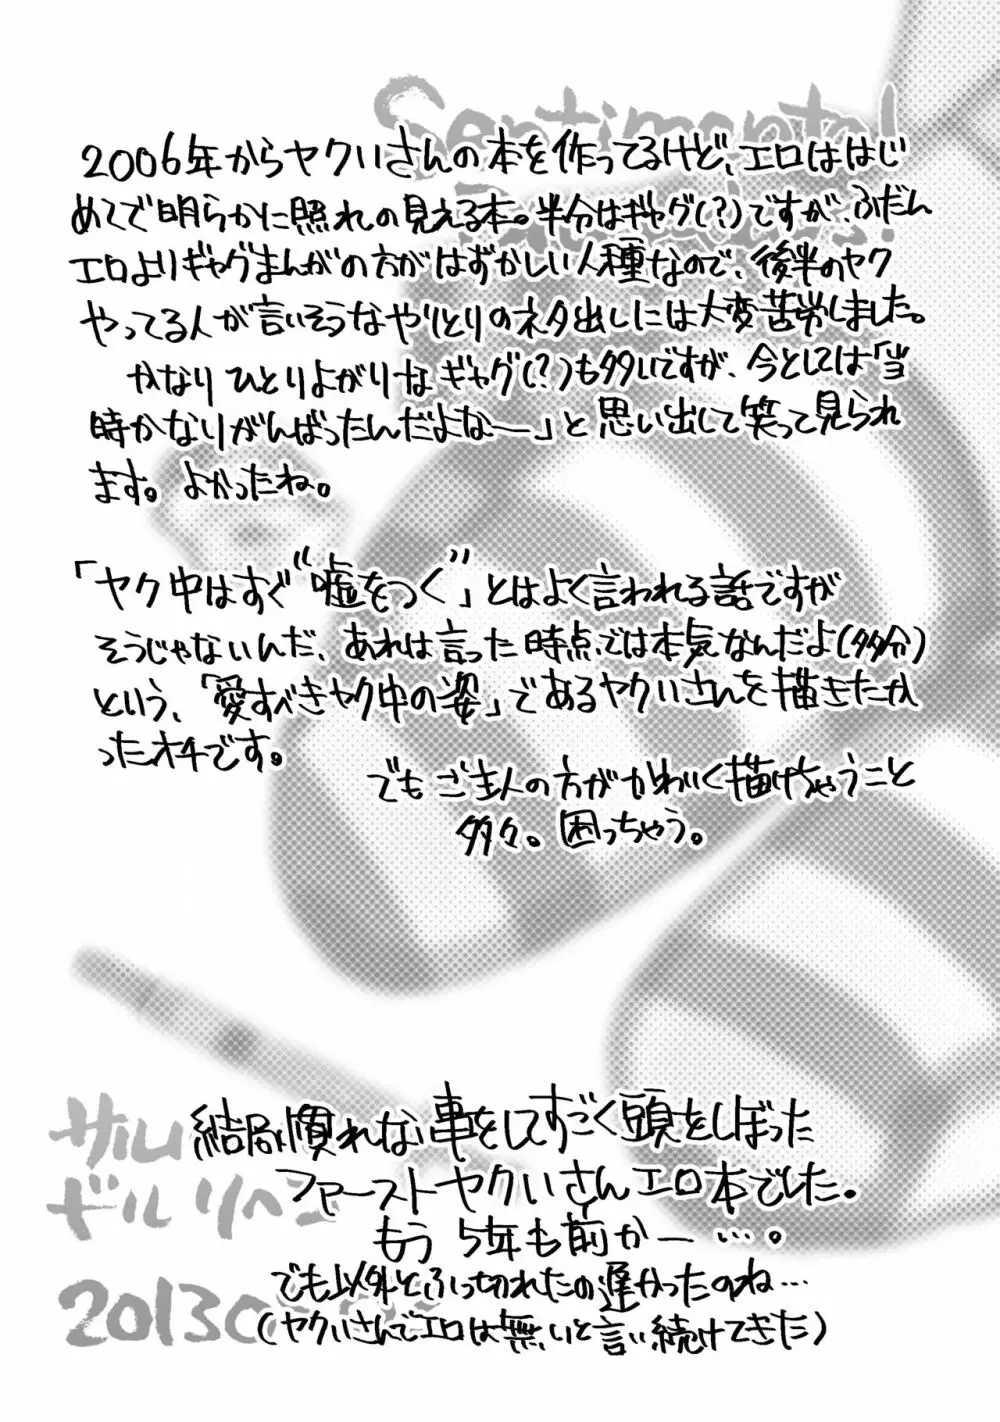 Sentimental
2006年からヤクいさんの本を作ってるけど、エロははじ
めてで明らかに照れの見える本。半分はギャグ(?)ですが、ふだん
エロよりギャグまんがの方がはずかしい人種なので、後半のヤク
やってる人が言いそうなやりとりのネタ出しには大変苦労しました。
かなりひとりよがりなギャグ(?)も多いですが、今としては「当
時かなりがんばったんだよなー」と思い出して笑って見られ
ます。よかったね。
「ヤク中はすぐ“嘘をつく”」とはよく言われる話ですが
そうじゃないんだ、あれは言った時点では本気なんだよ(多分)
という、「愛すべきヤク中の姿」であるヤクいさんを描きたか
ったオチです。
でもご主人の方がかわいく描けちゃうこと
多々。困っちゃう。
結局慣れない事をしてすごく頭をしぼった
ファーストヤクいさんエロ本でした。
もう5年も前かー…。
でも以外とふっ切れたの遅かったのね…
(ヤクいさんでエロは無いと言い続けてきた)
サルルル
ギル リヘン
2013